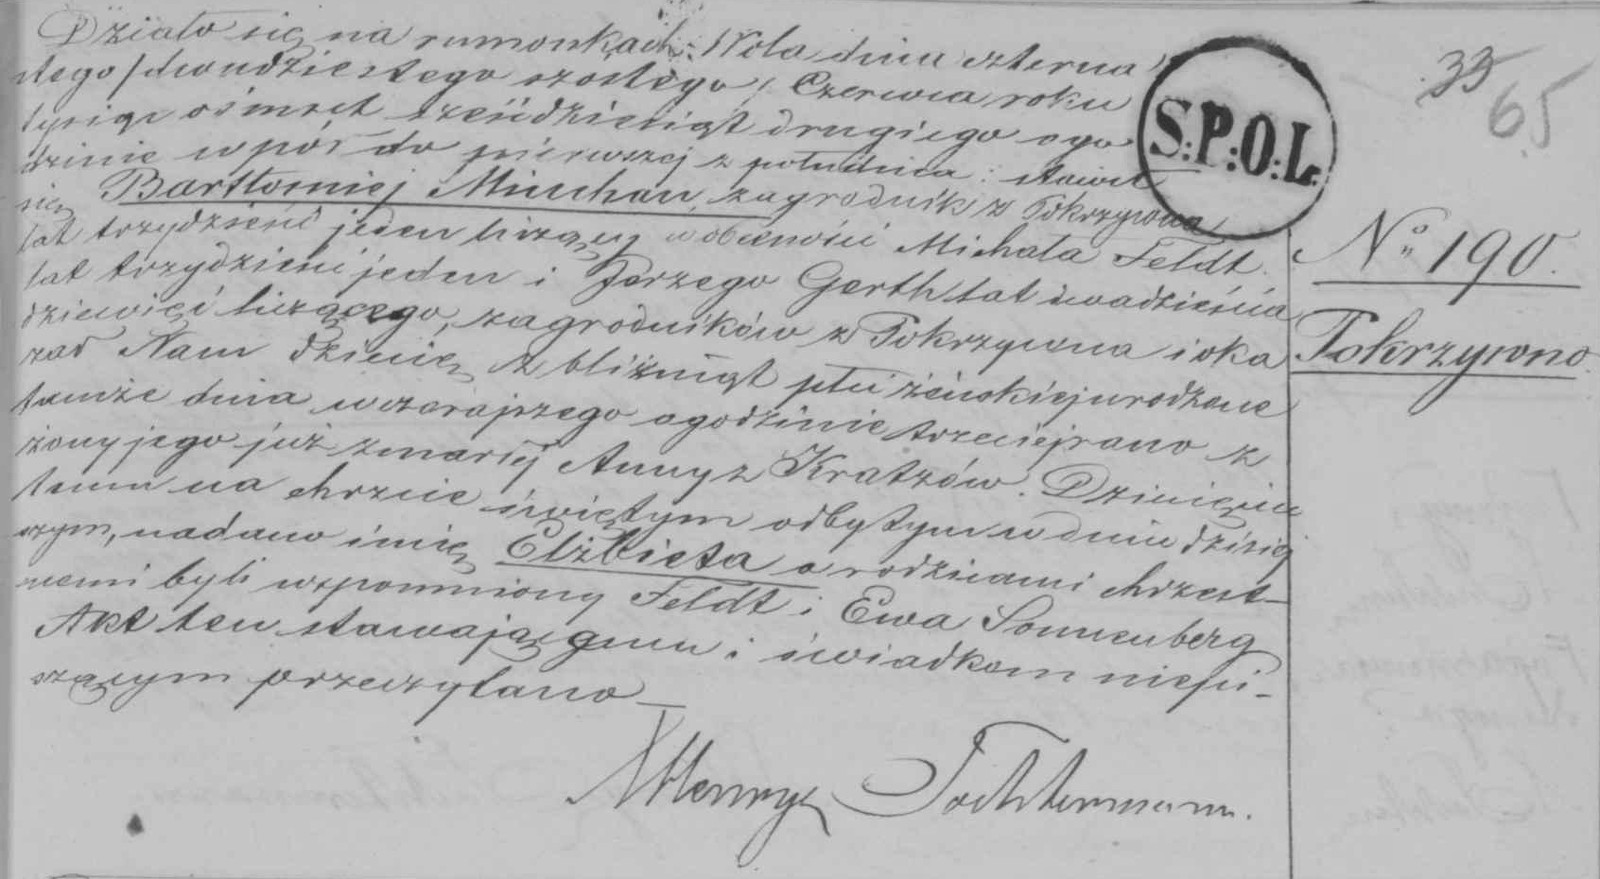 Działo się na rumonkach Wola dnia czterna
stego /dwudziestego szóstego/ Czerwca roku
tysiąc ośmset sześćdziesiąt drugiego o go
dzinie w pół do pierwszej z południa: stawił
się Bartłomiej Minchau, zagrodnik z Pokrzywna
lat trzydzieści jeden liczący w obecności Michała Feldt
lat trzydzieści jeden i Jerzego Gerth lat dwadzieścia
dziewięć liczącego, zagrodników z Pokrzywna i oka
zał Nam dziecię z bliźniąt płci żeńskiej urodzone
tamże dnia wczorajszego o godzinie trzeciej rano z
żony jego już zmarłej Anny z Kratzów. Dziecięciu
temu na chrzcie świętym odbytym w dniu dzisiej
szym, nadano imię Elżbieta a rodzicami chrzest-
nemi byli wspomniony Feldt i Ewa Sonnenberg
Akt ten stawającemu i świadkom niepi-
szącym przeczytano
Henryk Tochtermann.
S:P:O:L.
33
65
No 190.
Pokrzywno.